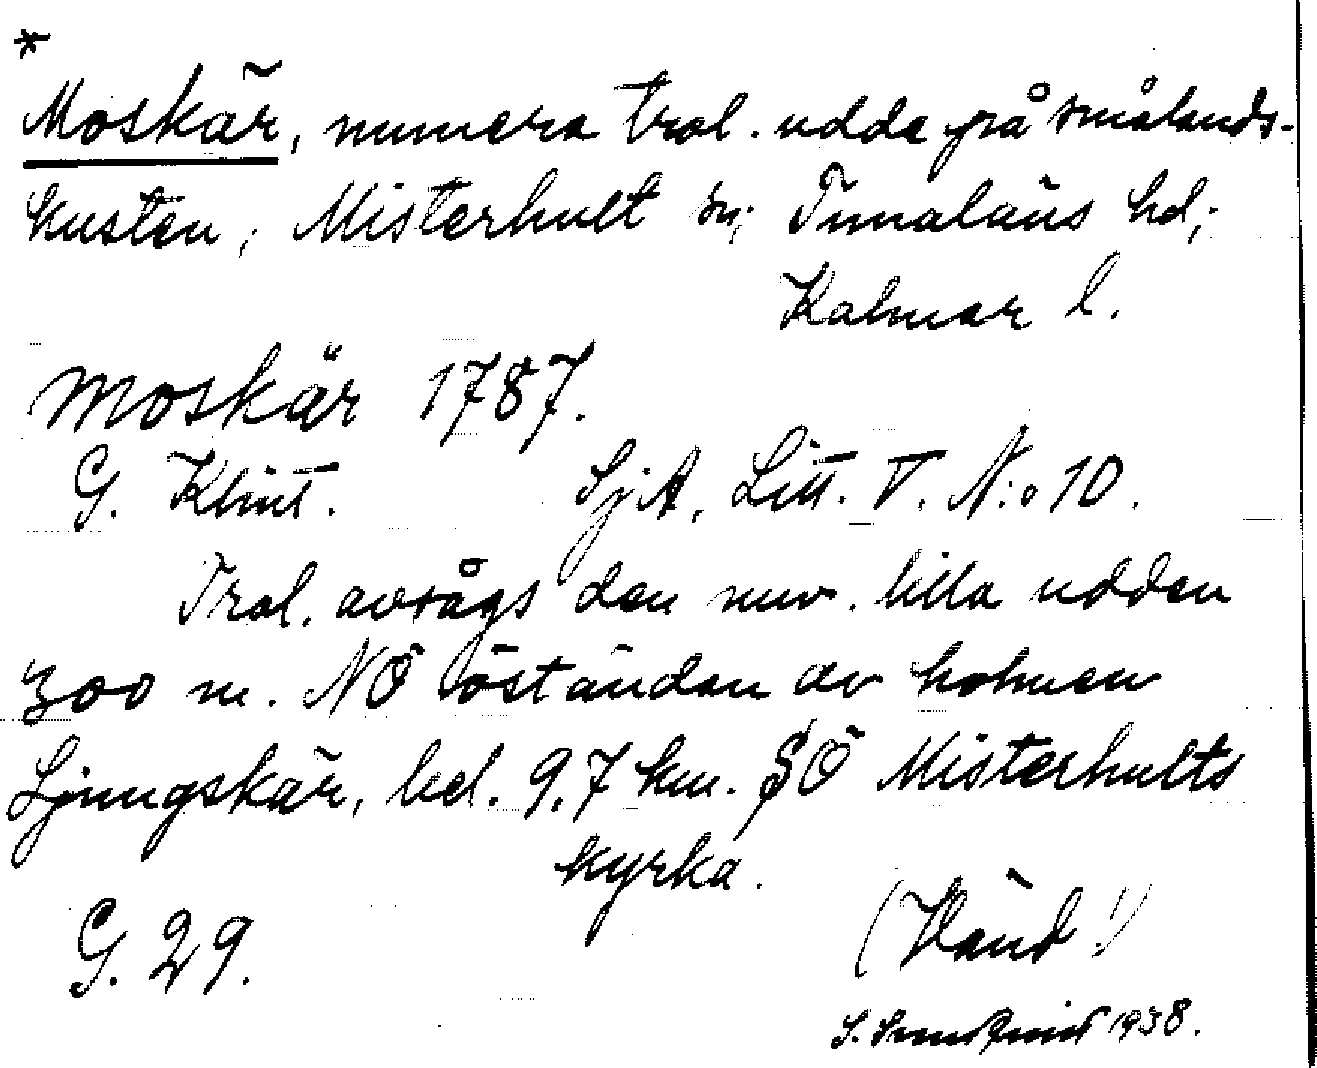 *
Moskär, numera trol. udde på smålands-
kusten, Misterhult sn; Tunaläns hd;
Kalmar l.
Moskär 1787.
G. Klint. SjA, Litt. V. N:o 10.
Trol. avsågs den nuv. lilla udden
300 m. NÖ öständan av holmen
Ljungskär, bel. 9,7 km. SÖ Misterhults
kyrka.
G. 29. (Vänd!)
1938.